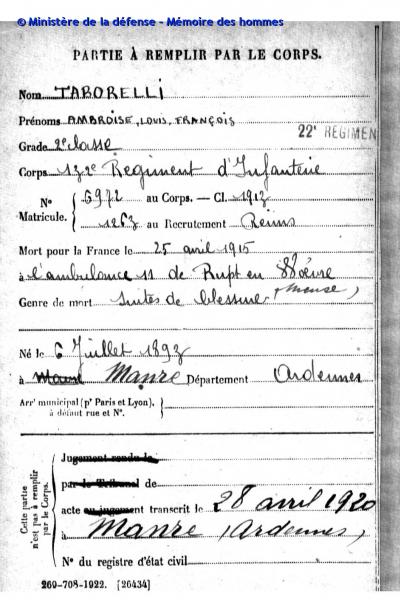 © Ministère de la défense - Mémoire des hommes
PARTIE À REMPLIR PAR LE CORPS.
Nom TABORELLI
Prénoms AMBROISE, LOUIS, FRANÇOIS
22e RÉGIMEN
Grade 2e classe
Corps 132e Regiment d'Infanterie
No Matricule. 5972 au Corps. — Cl. 1913
1263 au Recrutement Reims
Mort pour la France le 25 avril 1915
à l'ambulance 11 de Rupt en Woëvre
(Meuse)
Genre de mort Suites de blessures
Né le 6 Juillet 1893
à Manre Département Ardennes
Arrt municipal (pr Paris et Lyon),
à défaut rue et No.
Cette partie n'est pas à remplir par le Corps.
Jugement rendu le
par le Tribunal de
acte ou jugement transcrit le 28 avril 1920
à Manre (Ardennes)
No du registre d'état civil
269-708-1922. [26434]